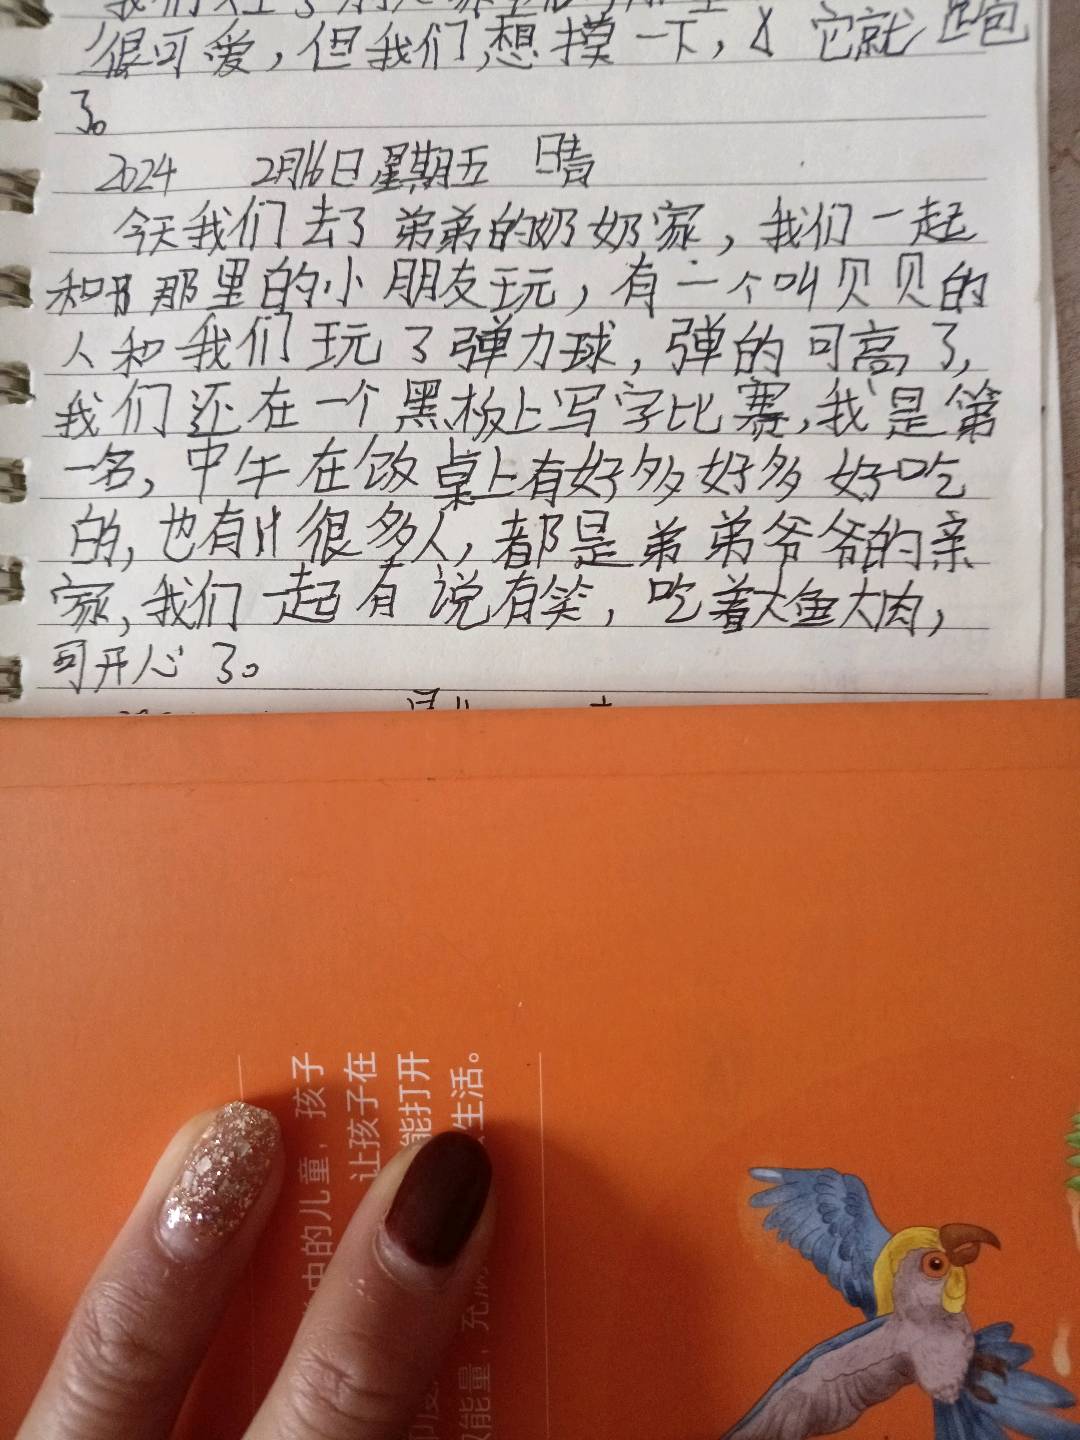 很可爱，但我们想摸一下，它就跑
了。
2024 2月16日 星期五 晴
今天我们去了弟弟的奶奶家，我们一起
和那里的小朋友玩，有一个叫贝贝的
人和我们玩了弹力球，弹的可高了，
我们还在一个黑板上写字比赛，我是第
一名，中午在饭桌上有好多好多好吃
的，也有很多人，都是弟弟爷爷的亲
家，我们一起有说有笑，吃着大鱼大肉，
可开心了。
中的儿童，孩子
让孩子在
能打开
生活。
能量，充